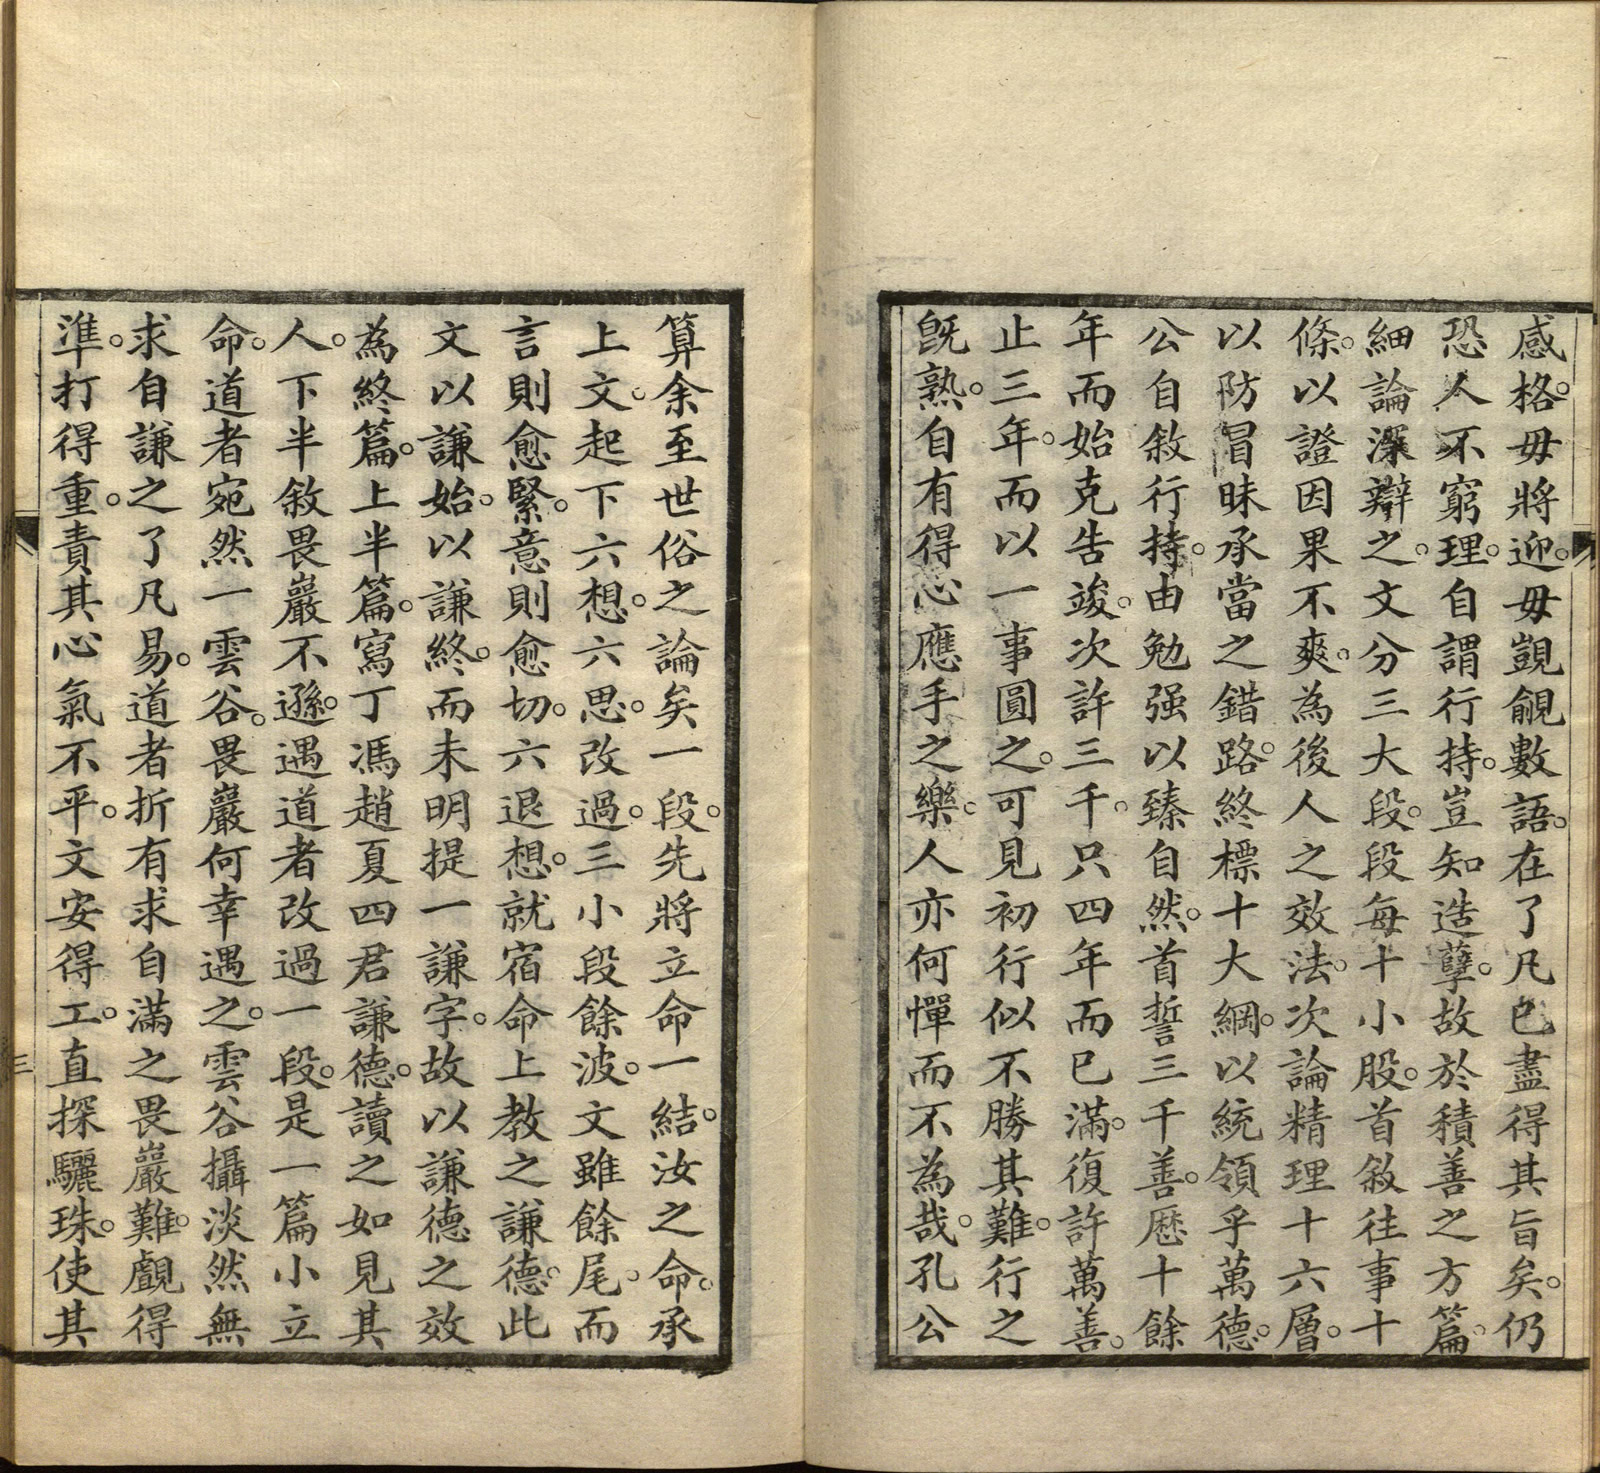 感格。毋將迎。毋覬覦數語。在了凡已盡得其旨矣。仍
恐人不窮理。自謂行持。豈知造孽。故於積善之方篇。
細論深辯之。文分三大段。段每十小股。首敘往事十
條。以證因果不爽。為後人之效法。次論精理十六層。
以防冒昧承當之錯路。終標十大綱。以統領乎萬德。
公自敘行持。由勉强以臻自然。首誓三千善。歷十餘
年而始克告竣。次許三千。只四年而已滿。復許萬善。
止三年。而以一事圓之。可見初行似不勝其難。行之
既熟。自有得心應手之樂。人亦何憚而不為哉。孔公
算余至世俗之論矣一段。先將立命一結。汝之命。承
上文。起下六想。六思。改過。三小段餘波。文雖餘尾。而
言則愈緊。意則愈切。六退想。就宿命上教之謙德。此
文以謙始。以謙終。而未明提一謙字。故以謙德之效
為終篇。上半篇。寫丁馮趙夏四君謙德。讀之如見其
人。下半敘畏巖不遜。遇道者改過一段。是一篇小立
命。道者宛然一雲谷。畏巖何幸遇之。雲谷攝淡然無
求自謙之了凡易。道者折有求自滿之畏巖難。覷得
準。打得重。責其心氣不平。文安得工。直探驪珠。使其
三